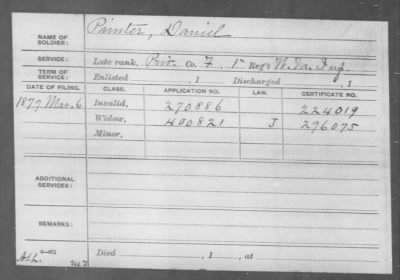 NAME OF SOLDIER: Painter, Daniel
SERVICE: Late rank, Priv. Co. F, 1st Reg't W. Va. Inf.
TERM OF SERVICE: Enlisted , 1 Discharged , 1
DATE OF FILING. CLASS. APPLICATION NO. LAW. CERTIFICATE NO.
1877 Mar. 6 Invalid, 270.886 224019
Widow, 490821 J 296075
Minor,
ADDITIONAL SERVICES:
REMARKS:
6—472 Died , 1 , at